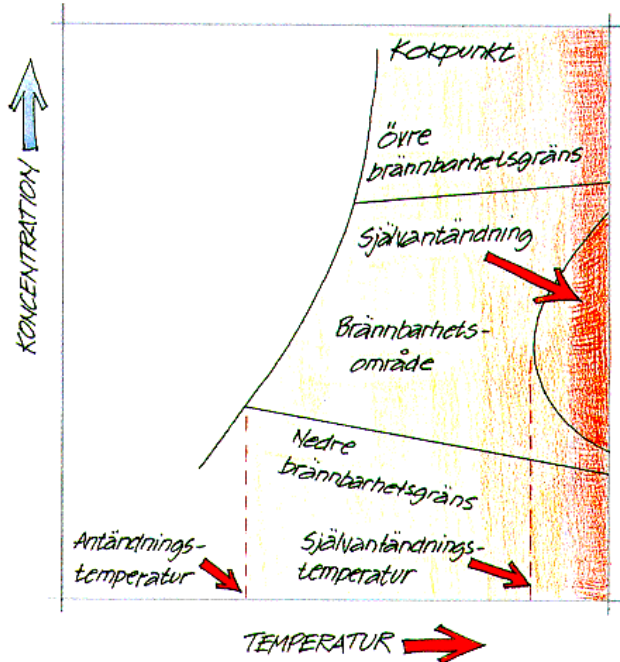 Kokpunkt
Övre
brännbarhetsgräns
Självantändning
Brännbarhets-
område
Nedre
brännbarhetsgräns
Antändnings-
temperatur
Självantändnings-
temperatur
KONCENTRATION
TEMPERATUR